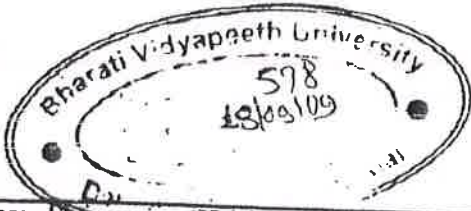 Bharati Vidyapeeth University
578
18/09/09